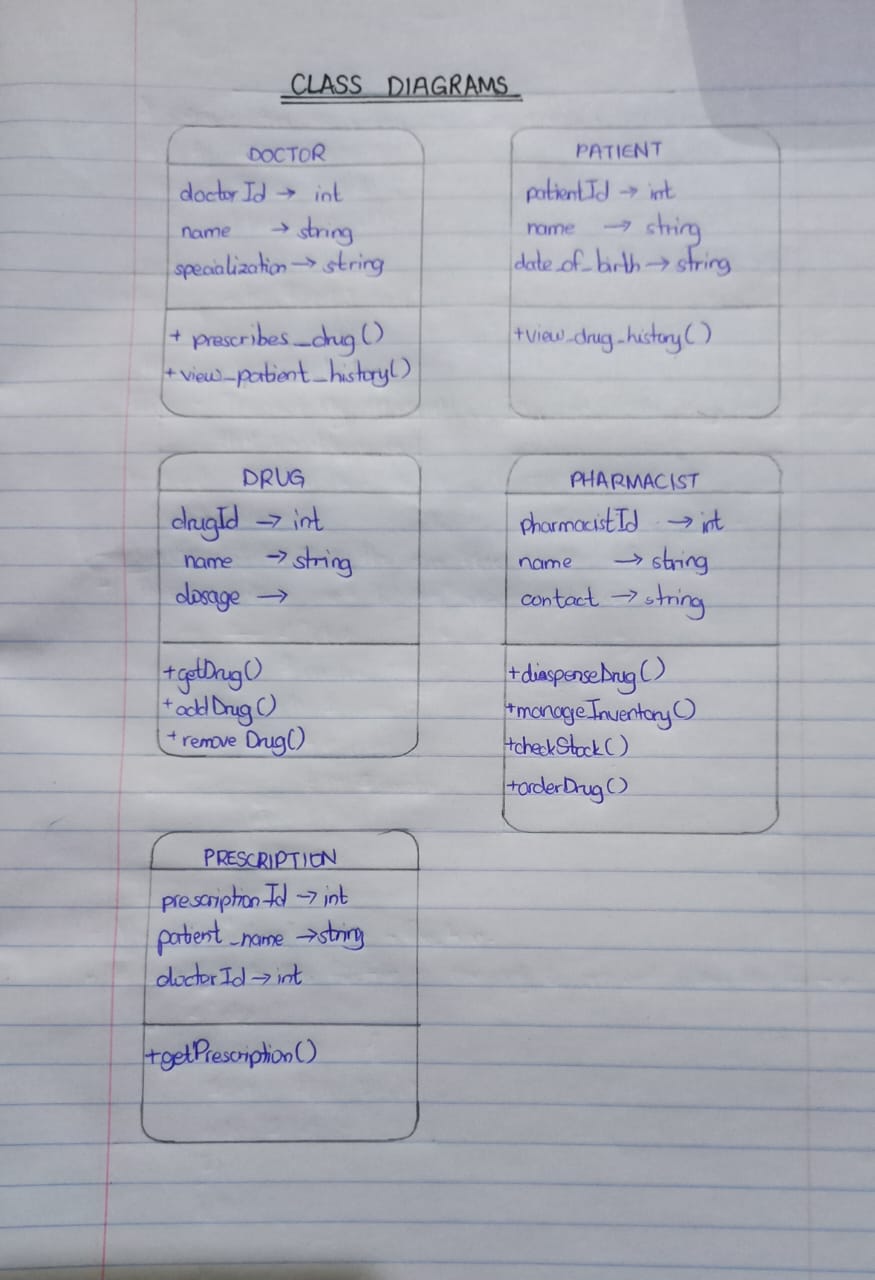 CLASS DIAGRAMS
DOCTOR
doctorId → int
name → string
specialization → string
+ prescribes_drug()
+ view_patient_history()
PATIENT
patientId → int
name → string
date_of_birth → string
+view_drug_history()
DRUG
drugId → int
name → string
dosage →
+getDrug()
+addDrug()
+removeDrug()
PHARMACIST
pharmacistId → int
name → string
contact → string
+diaspenseDrug()
+manageInventory()
+checkStock()
+orderDrug()
PRESCRIPTION
prescriptionId → int
patient_name → string
doctorId → int
+getPrescription()